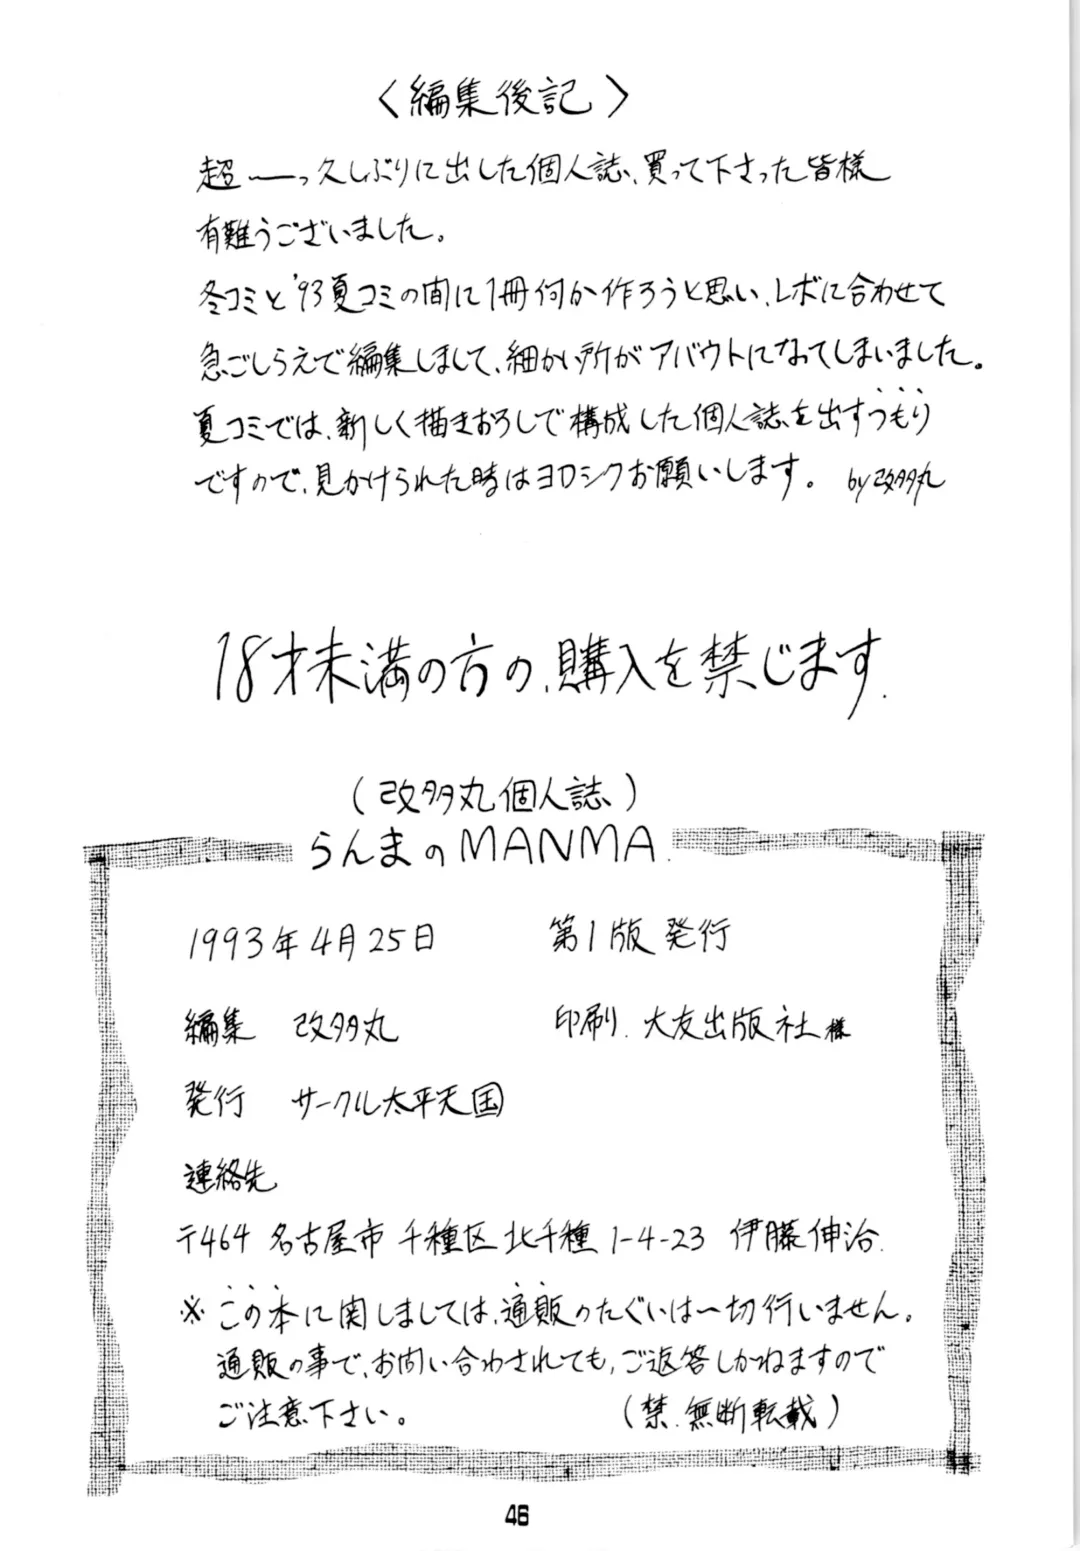 〈編集後記〉
超──っ久しぶりに出した個人誌、買って下さった皆様
有難うございました。
冬コミと'93夏コミの間に1冊何か作ろうと思い、レボに合わせて
急ごしらえで編集しまして、細かい所がアバウトになってしまいました。
夏コミでは、新しく描きおろしで構成した個人誌を出すつもり
ですので、見かけられた時はヨロシクお願いします。 by改多丸
18才未満の方の、購入を禁じます.
(改多丸個人誌)
らんまのMANMA.
1993年4月25日 第1版発行
編集 改多丸 印刷. 大友出版社様
発行 サークル太平天国
連絡先
〒464 名古屋市 千種区 北千種 1-4-23 伊藤伸治.
※ この本に関しましては、通販のたぐいは一切行いません。
通販の事で、お問い合わされても、ご返答しかねますので
ご注意下さい。 (禁.無断転載)
46